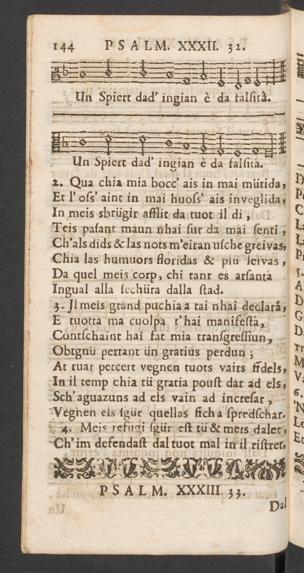 144 PSALM. XXXII. 32.
Un Spiert dad' ingian è da falsità.
Un Spiert dad' ingian è da falsità.
2. Qua chia mia bocc' ais in mai mütida,
Et l' oss' aint in mai huoss' ais inveglida,
In meis sbrügir afflit da tuot il di,
Teis pasant maun nhai sur da mai senti,
Ch'als dids & las nots m'eiran usche greivas,
Chia las humuors floridas & piu seivas,
Da quel meis corp, chi tant es arsantà
Ingual alla sechüra dalla stad.
3. Il meis grand puchia a tai nhai declarà,
E tuotta ma cuolpa t'hai manifestà,
Contschaint hai fat mia transgressiun,
Obtgnü pertant ün gratius perdun;
At ruar percert vegnen tuots vairs fidels,
In il temp chia tü gratia poust dar ad els,
Sch' aguazuns ad els vain ad incresar,
Vegnen els sgür quellas fich a spredschar.
4. Meis refugi sgür est tü & meis dalet,
Ch' im defendast dal tuot mal in il ristret,
PSALM. XXXIII 33.
Dal